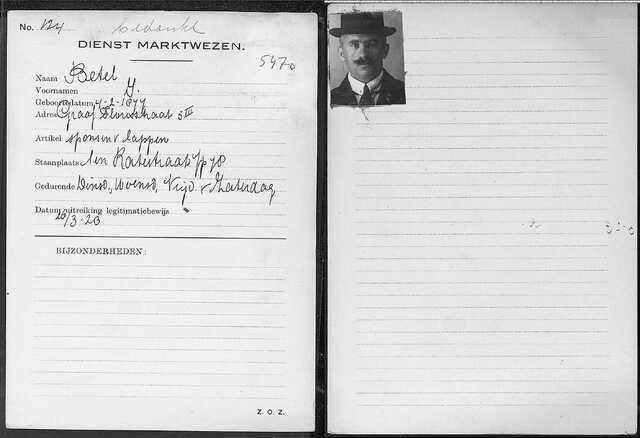 No. 124 bedankt
DIENST MARKTWEZEN.
5470
Naam Betel
Voornamen Y.
Geboortedatum 4-2-1877
Adres Graaf Florisstraat 5 III
Artikel sponsen & lappen
Staanplaats ten Katestraat
Gedurende Dinsd., Woensd, Vrijd & Zaterdag
Datum uitreiking legitimatiebewijs
20/3-23
BIJZONDERHEDEN:
Z. O. Z.